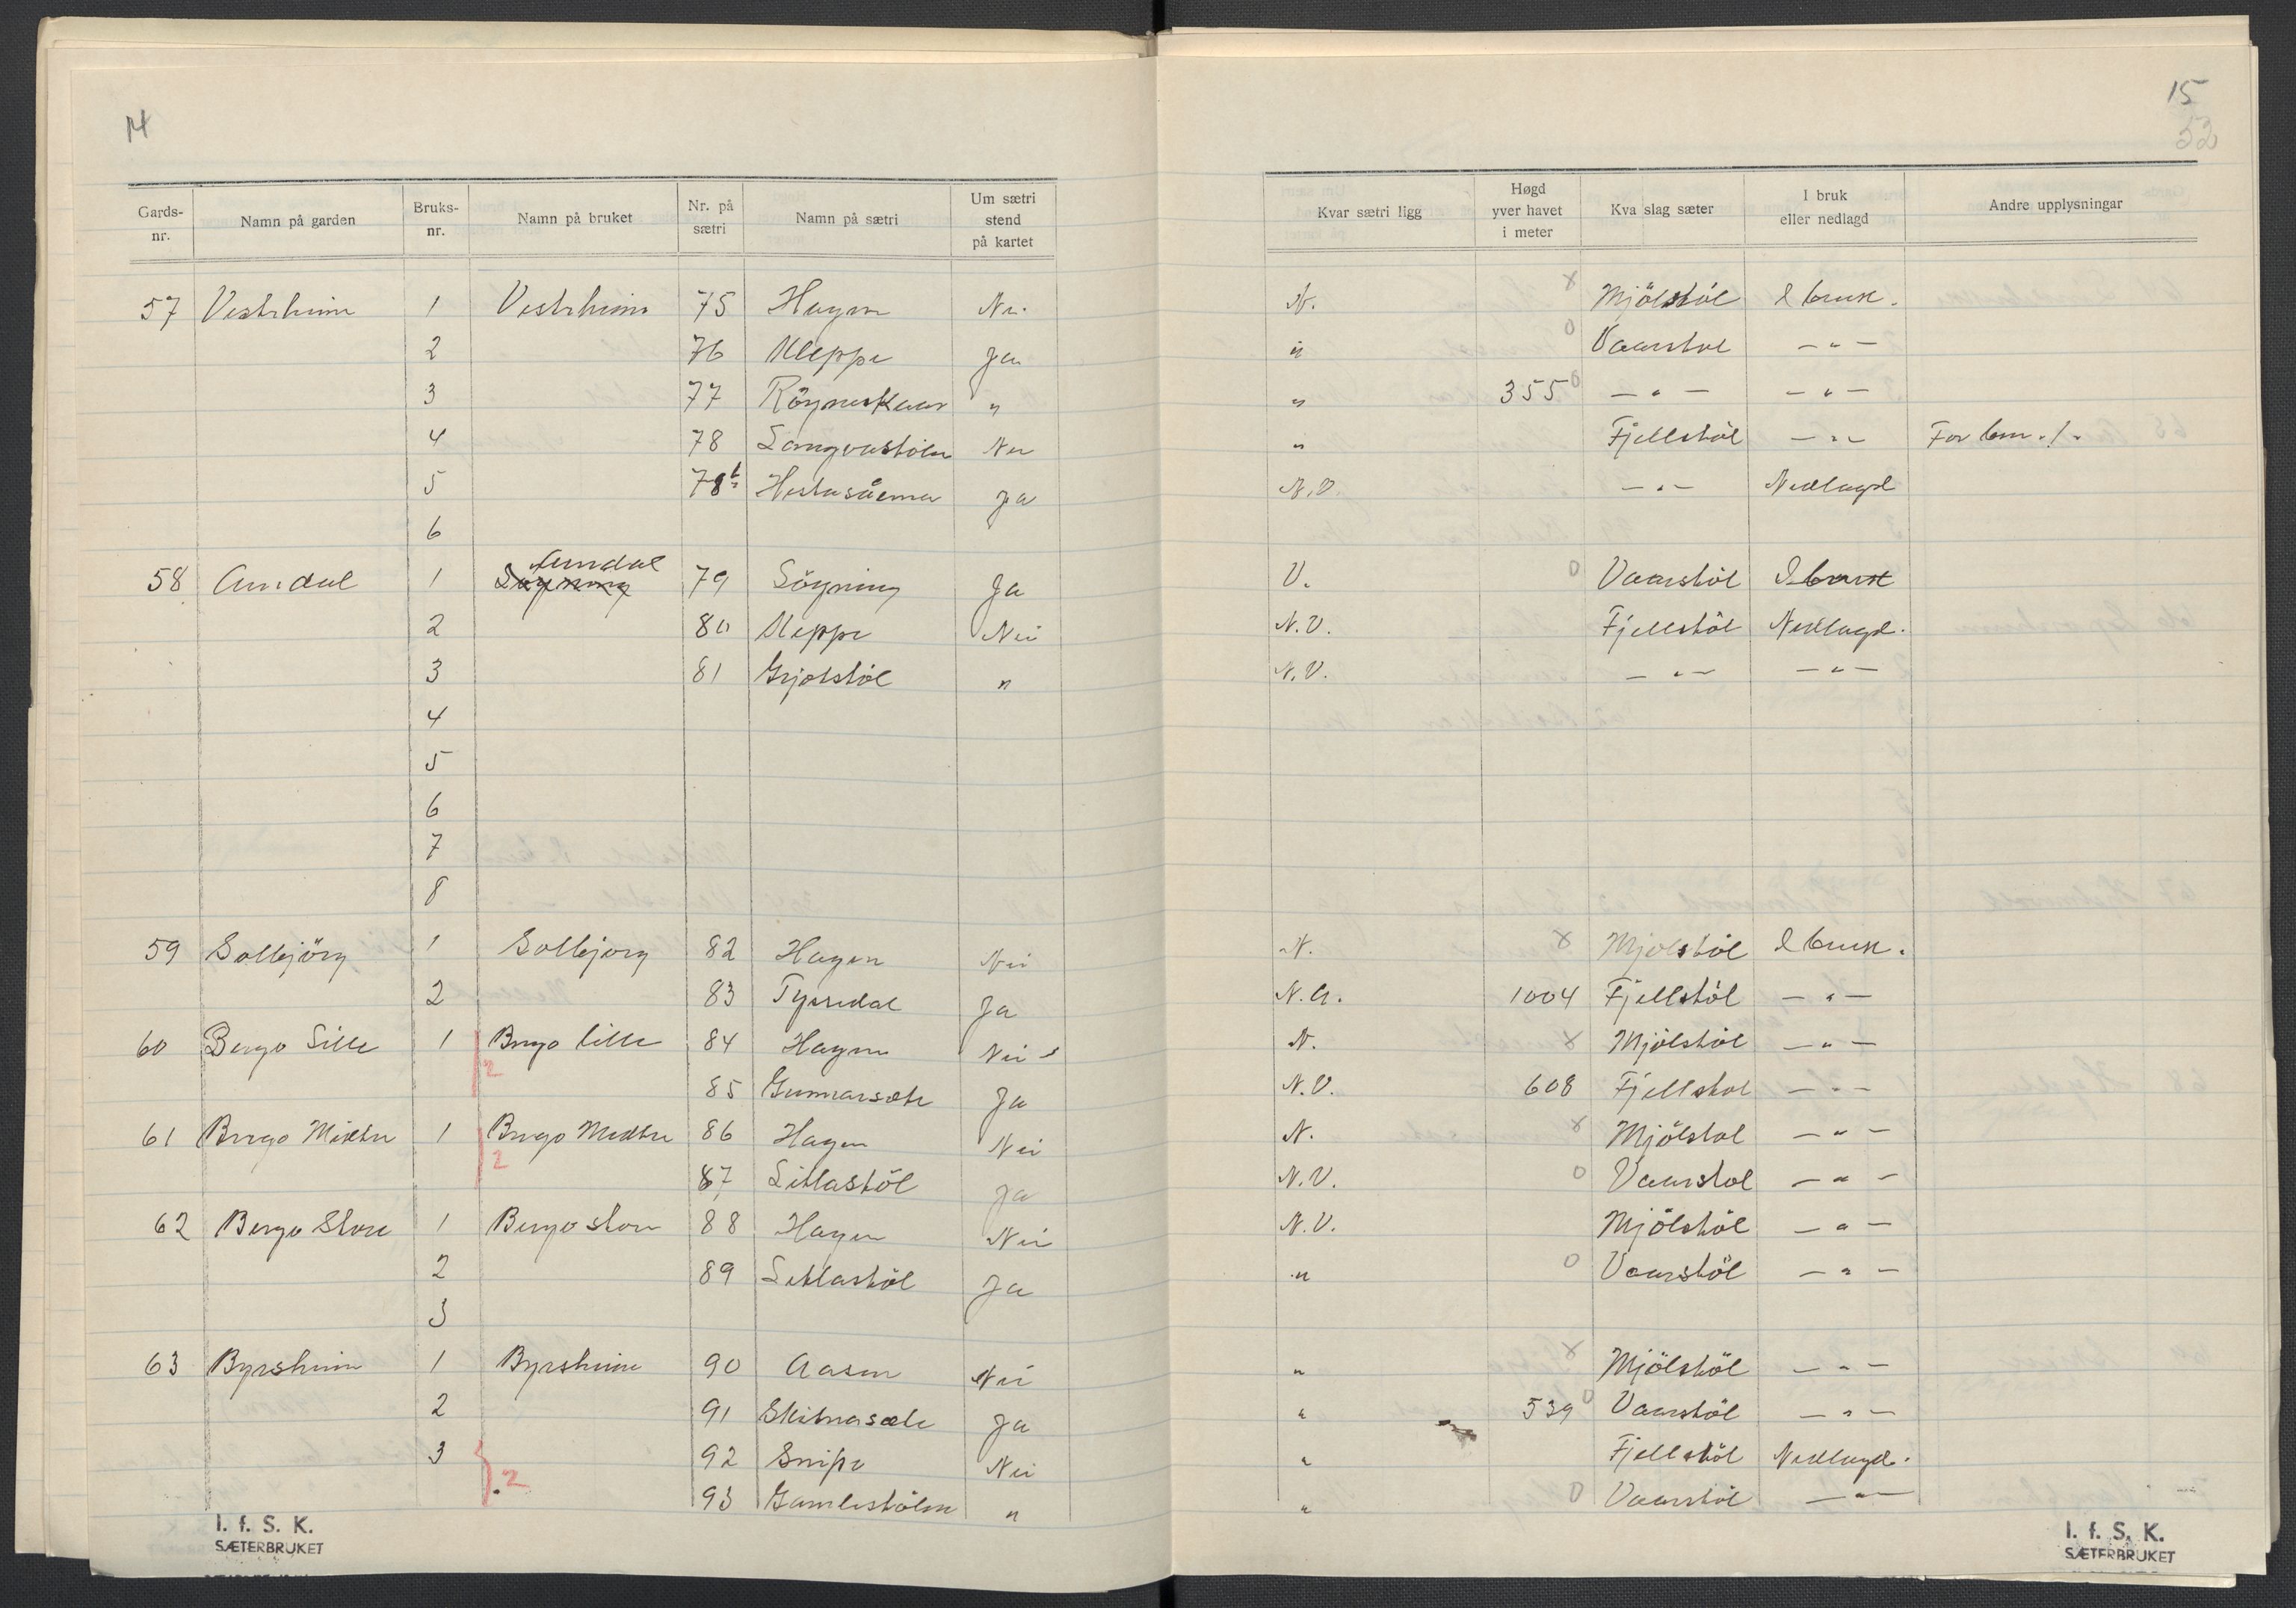 14
15
52
Gards-nr. Namn på garden Bruks-nr. Namn på bruket Nr. på sætri Namn på sætri Um sætri stend på kartet Kvar sætri ligg Høgd yver havet i meter Kva slag sæter I bruk eller nedlagd Andre upplysningar
57 Vestrheim 1 Vestrheim 75 Hagen Nei N. x Mjölstöl I bruk.
2 76 Kleppe Ja " 0 Vaarstöl — " —
3 77 Röyneskaar " " 355 0 — " — — " —
4 78 Langvastölen Nei " Fjellstöl — " —
5 78b Ja N.V. — " — Nedlagd
6
58 Arndal 1 Söyning Arndal 79 Söyning Ja V. 0 Vaarstöl I bruk
2 80 Kleppe Nei N.V. Fjellstöl Nedlagd.
3 81 Grjotstöl " N.V. — " — — " —
4
5
6
7
8
59 Solbjörg 1 Solbjorg 82 Hagen Nei N. x Mjolstöl I bruk.
2 83 Tyssedal Ja N.A. 1004 Fjellstöl — " —
60 Bergo Lille 1 Bergo lille 84 Hagen Nei N. x Mjölstöl — " —
2 85 Gunnarsæte Ja N.V. 608 Fjellstol — " —
61 Bergo Midtre 1 Bergo Midtre 86 Hagen Nei N. x Mjölstol — " —
2 87 Litlastöl Ja N.V. 0 Vaarstol — " —
62 Bergo Store 1 Bergo store 88 Hagen Nei N.V. Mjölstöl — " —
2 89 Litlastöl Ja " 0 Vaarstöl — " —
3
63 Byrsheim 1 Byrsheim 90 Aasen Nei " x Mjölstöl — " —
2 91 Skitnasæte Ja " 539 0 Vaarstöl — " —
3 92 Snipe Nei " Fjellstöl Nedlagd.
2 93 Gamlestölen " " 0 Vaarstöl — " —
I. f. S. K.
SÆTERBRUKET
I. f. S. K.
SÆTERBRUKET